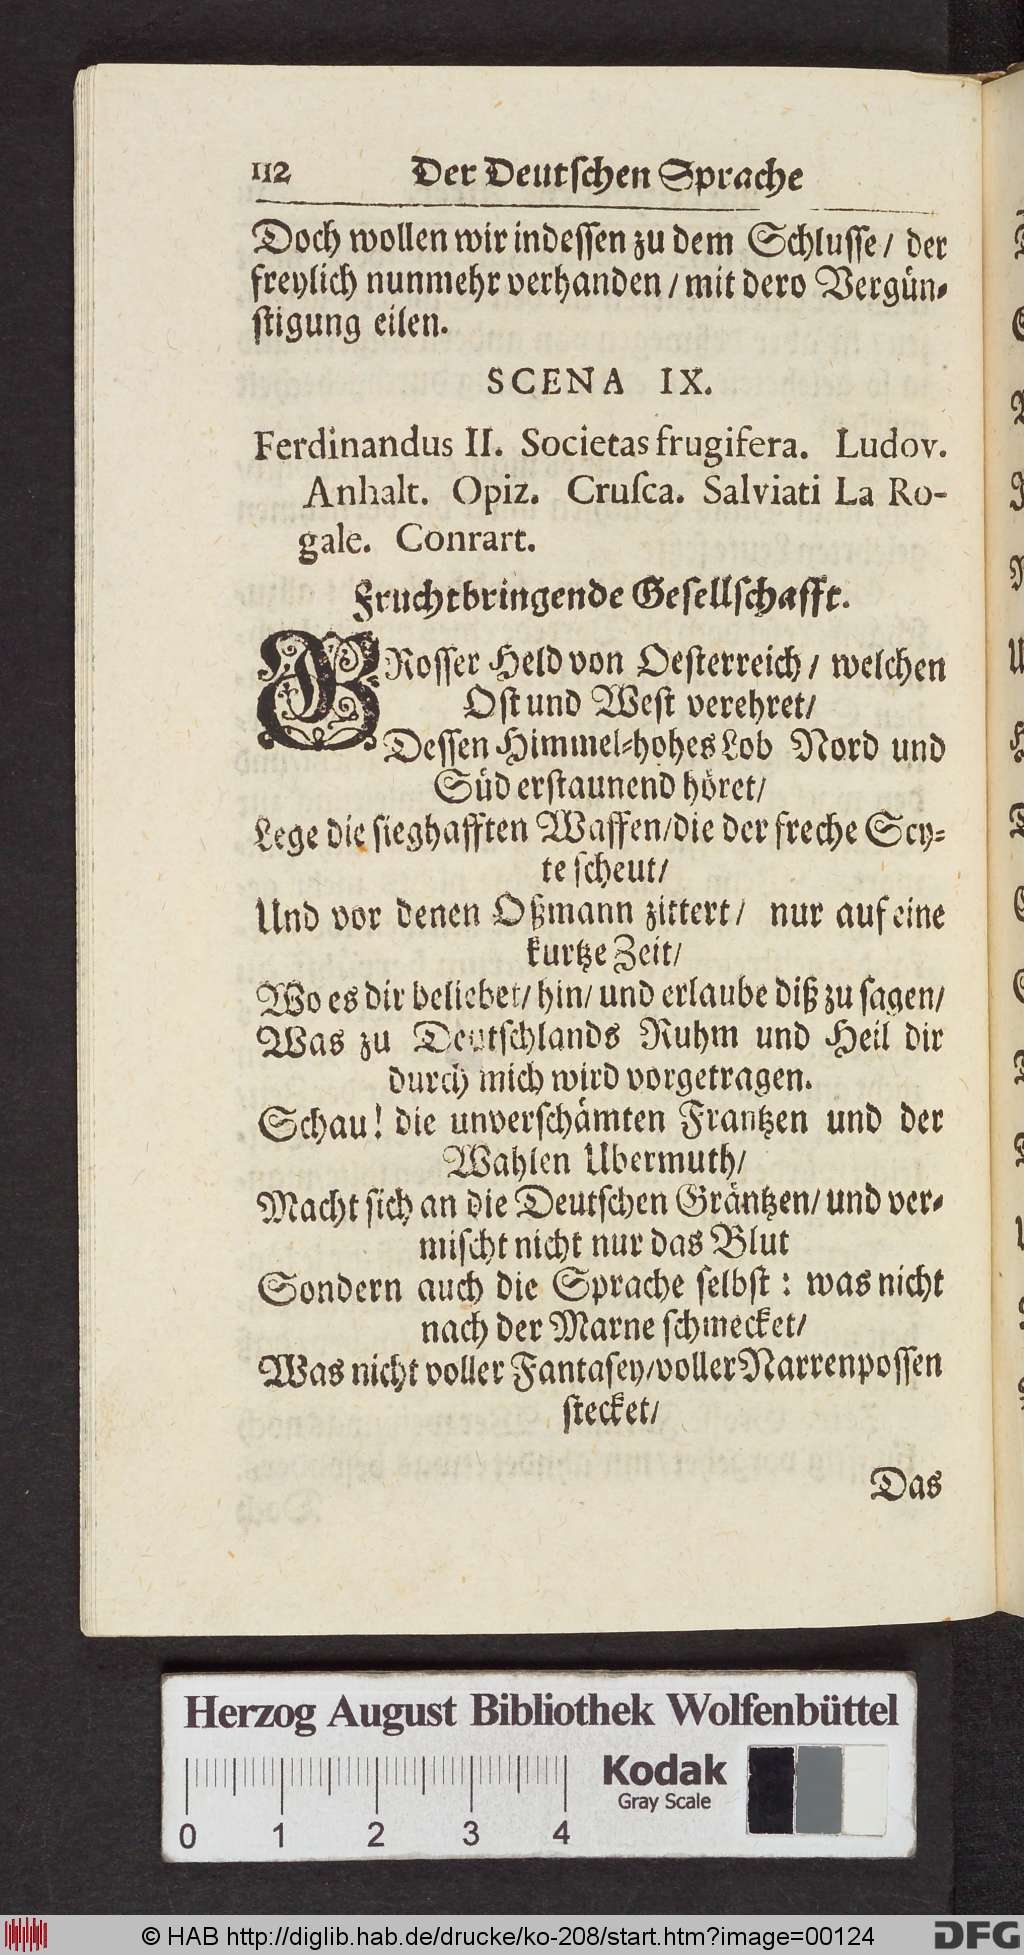 112 Der Deutschen Sprache
Doch wollen wir indessen zu dem Schlusse/ der
freylich nunmehr verhanden/ mit dero Vergün-
stigung eilen.
SCENA IX.
Ferdinandus II. Societas frugifera. Ludov.
Anhalt. Opiz. Crusca. Salviati La Ro-
gale. Conrart.
Fruchtbringende Gesellschafft.
GRosser Held von Oesterreich/ welchen
Ost und West verehret/
Dessen Himmel-hohes Lob Nord und
Süd erstaunend höret/
Lege die sieghafften Waffen/die der freche Scy-
te scheut/
Und vor denen Oßmann zittert/ nur auf eine
kurtze Zeit/
Wo es dir beliebet/ hin/ und erlaube diß zu sagen/
Was zu Deutschlands Ruhm und Heil dir
durch mich wird vorgetragen.
Schau! die unverschämten Frantzen und der
Wahlen Ubermuth/
Macht sich an die Deutschen Gräntzen/ und ver-
mischt nicht nur das Blut
Sondern auch die Sprache selbst: was nicht
nach der Marne schmecket/
Was nicht voller Fantasey/voller Narrenpossen
stecket/
Das
Herzog August Bibliothek Wolfenbüttel
Kodak
Gray Scale
0 1 2 3 4
© HAB http://diglib.hab.de/drucke/ko-208/start.htm?image=00124
DFG